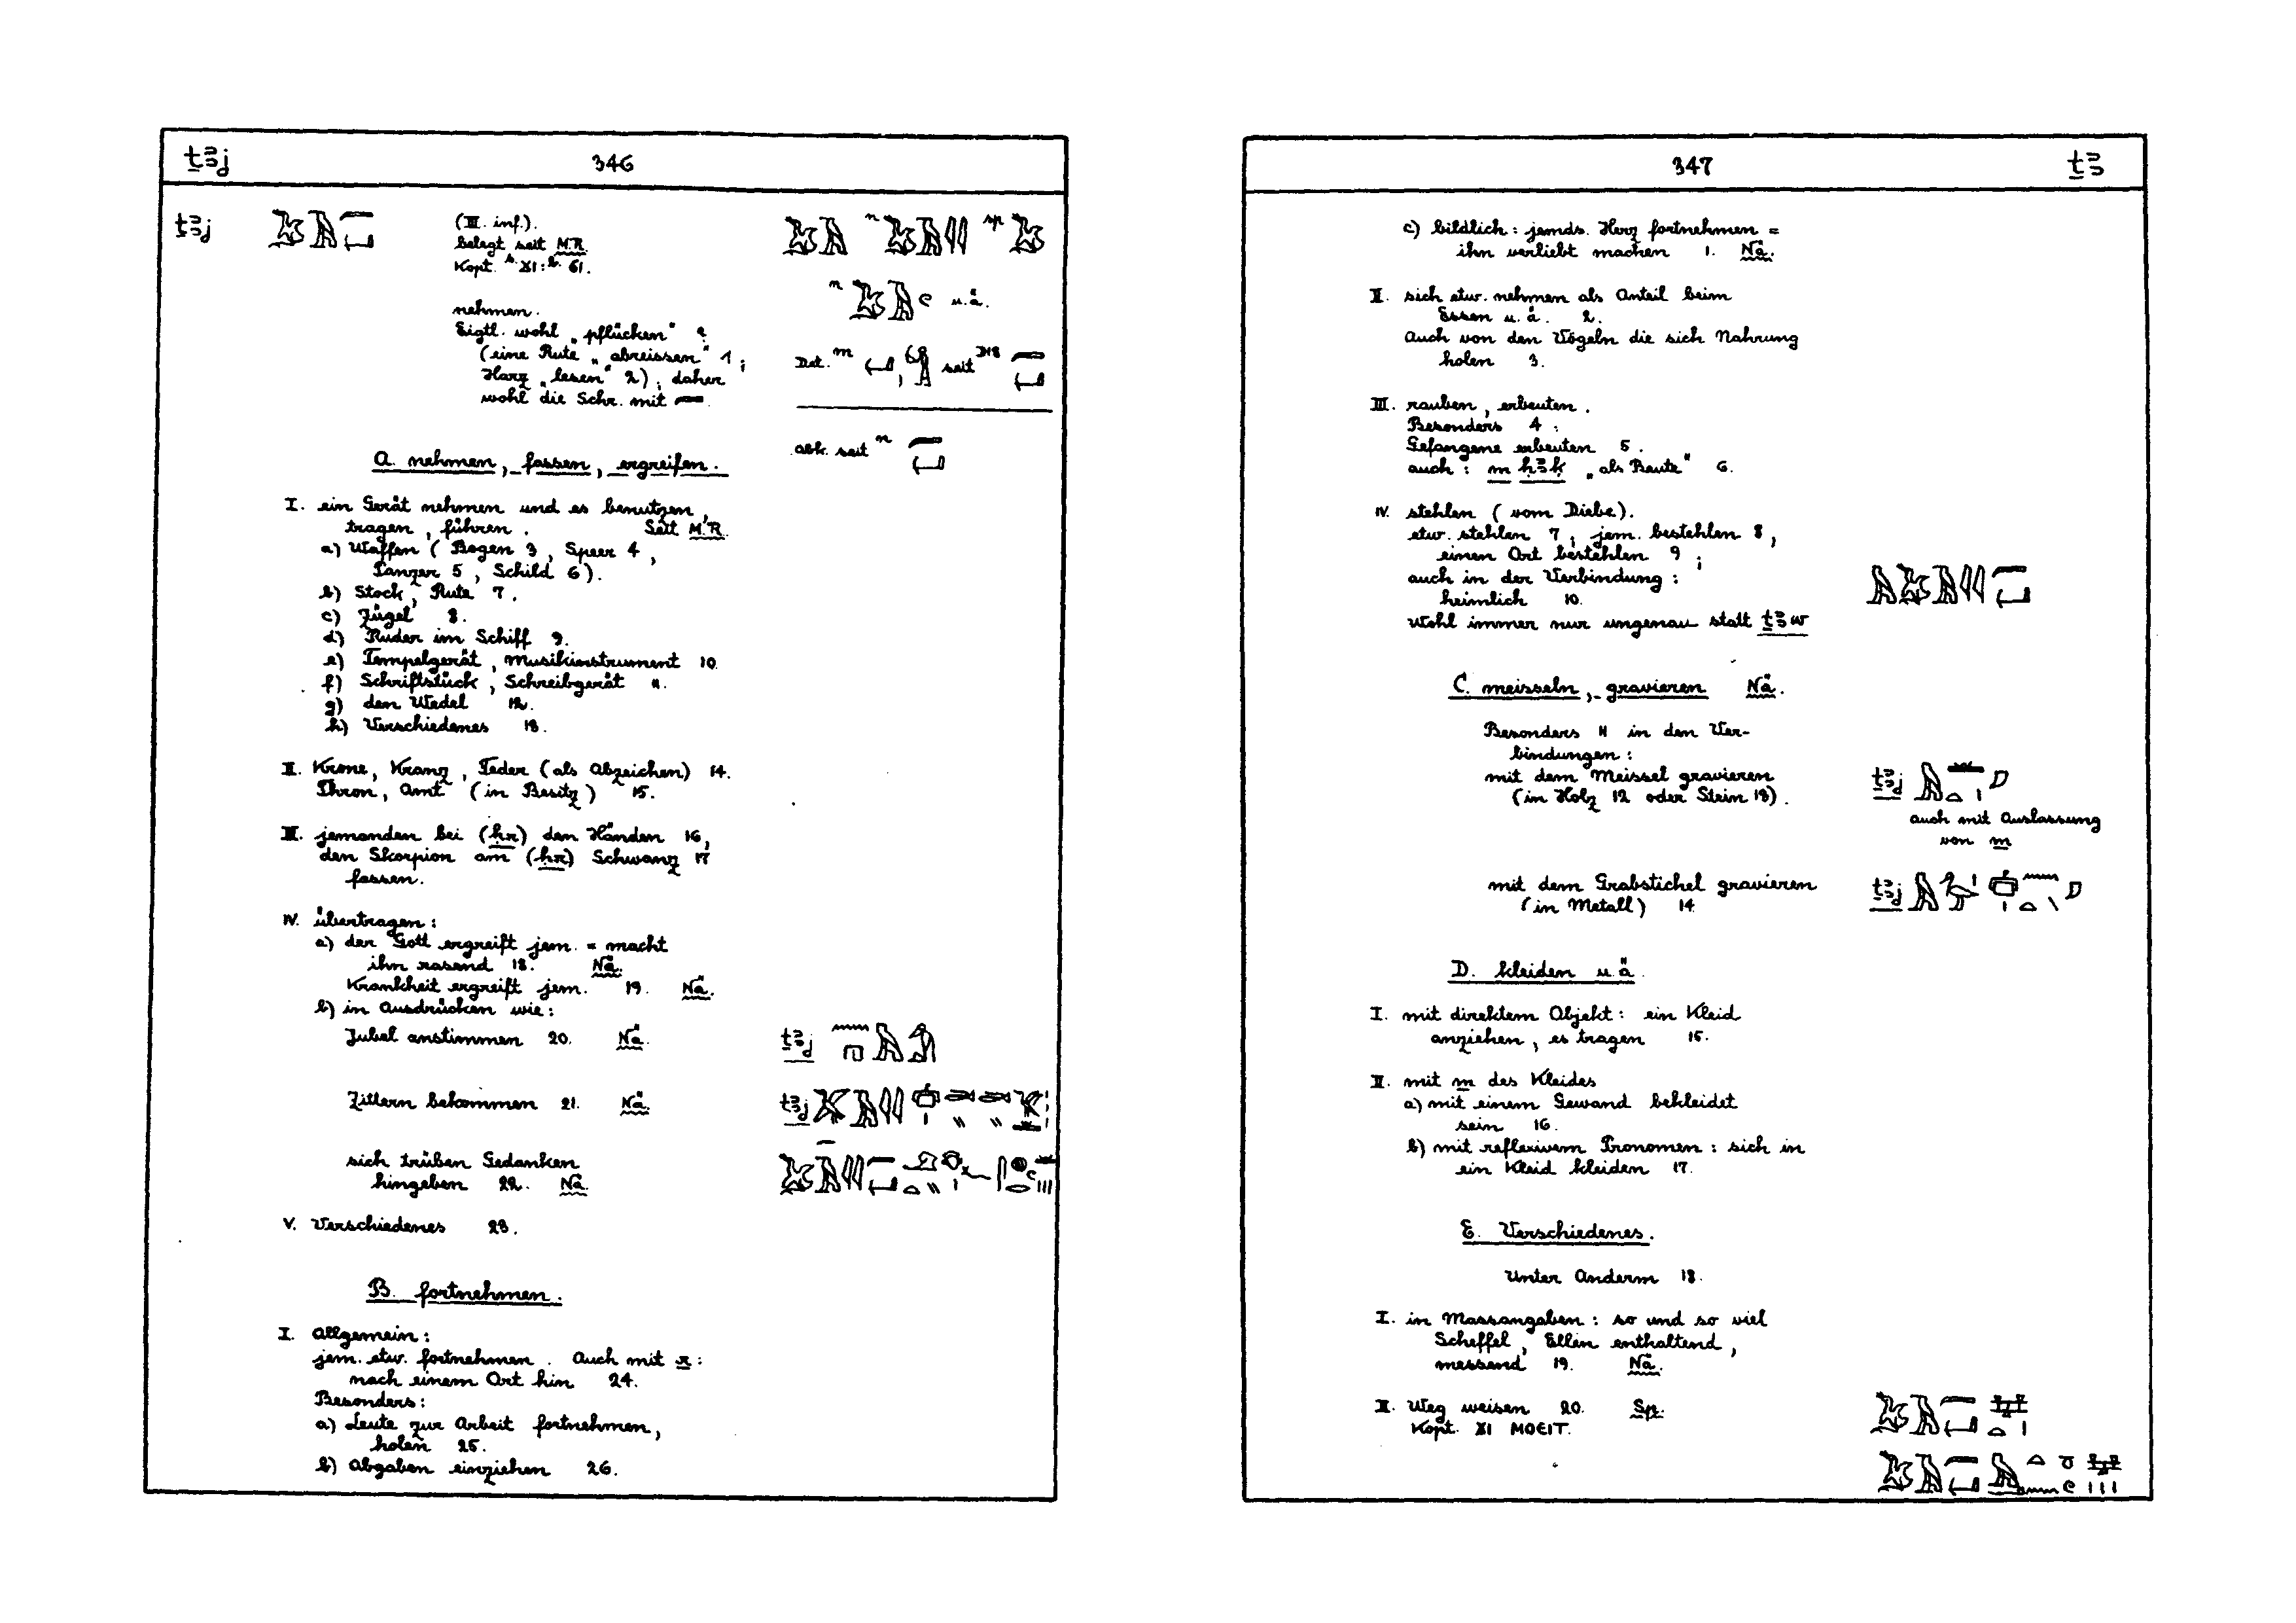 ṯꜣj 346
ṯꜣj (III. inf.).
belegt seit M.R.
Kopt. s. ϫⲓ: b. ϭⲓ.
nehmen.
Eigtl. wohl „pflücken" ?
(eine Rute „abreissen" 1;
Harz „lesen" 2), daher
wohl die Schr. mit
n sp
n u.ä.
Det. m , seit D18
abk. seit n
A. nehmen, fassen, ergreifen.
I. ein Gerät nehmen und es benutzen,
tragen, führen. Seit M.R.
a) Waffen (Bogen 3, Speer 4,
Panzer 5, Schild 6).
b) Stock, Rute 7.
c) Zügel 8.
d) Ruder im Schiff 9.
e) Tempelgerät, Musikinstrument 10.
f) Schriftstück, Schreibgerät 11.
g) den Wedel 12.
h) Verschiedenes 13.
II. Krone, Kranz, Feder (als Abzeichen) 14.
Thron, Amt (in Besitz) 15.
III. jemanden bei (ḥr) den Händen 16,
den Skorpion am (ḥr) Schwanz 17
fassen.
IV. übertragen:
a) der Gott ergreift jem. = macht
ihn rasend 18. Nä.
Krankheit ergreift jem. 19. Nä.
b) in Ausdrücken wie:
Jubel anstimmen 20. Nä. ṯꜣj
Zittern bekommen 21. Nä. ṯꜣj
sich trüben Gedanken
hingeben 22. Nä.
V. Verschiedenes 23.
B. fortnehmen.
I. Allgemein:
jem. etw. fortnehmen. Auch mit r:
nach einem Ort hin 24.
Besonders:
a) Leute zur Arbeit fortnehmen,
holen 25.
b) Abgaben einziehen 26.
347 ṯꜣ
c) bildlich: jemds. Herz fortnehmen =
ihn verliebt machen 1. Nä.
II. sich etw. nehmen als Anteil beim
Essen u.ä. 2.
Auch von den Vögeln die sich Nahrung
holen 3.
III. rauben, erbeuten.
Besonders 4:
Gefangene erbeuten 5.
auch: m ḥꜣḳ „als Beute" 6.
IV. stehlen (vom Diebe).
etw. stehlen 7, jem. bestehlen 8,
einen Ort bestehlen 9;
auch in der Verbindung:
heimlich 10.
Wohl immer nur ungenau statt ṯꜣw
C. meisseln, gravieren Nä.
Besonders 11 in den Ver-
bindungen:
mit dem Meissel gravieren ṯꜣj
(in Holz 12 oder Stein 13).
auch mit Auslassung
von m
mit dem Grabstichel gravieren ṯꜣj
(in Metall) 14
D. kleiden u.ä.
I. mit direktem Objekt: ein Kleid
anziehen, es tragen 15.
II. mit m des Kleides
a) mit einem Gewand bekleidet
sein 16.
b) mit reflexivem Pronomen: sich in
ein Kleid kleiden 17.
E. Verschiedenes.
Unter Anderm 18.
I. in Massangaben: so und so viel
Scheffel, Ellen enthaltend,
messend 19. Nä.
II. Weg weisen 20. Sp.
Kopt. ϫⲓ ⲙⲟⲉⲓⲧ.